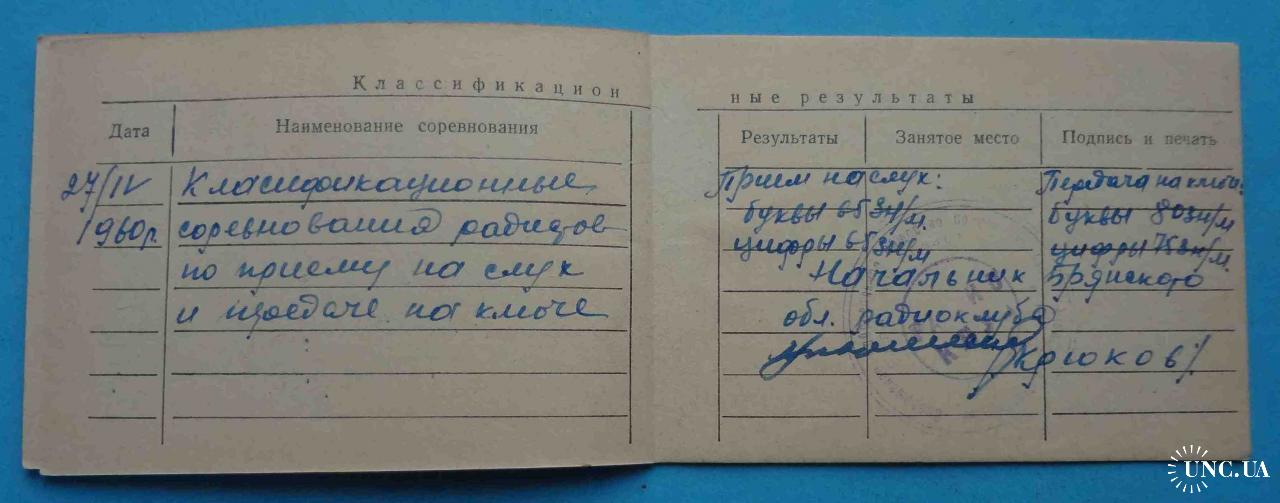 Классификационные результаты
Дата Наименование соревнования Результаты Занятое место Подпись и печать
27/IV Класификационные Прием на слух: Передача на ключе:
1960г. соревнования радистов буквы 65 зн/м буквы 80 зн/м
по приему на слух цифры 65 зн/м цифры 75 зн/м.
и передаче на ключе Начальник Брянского
обл. радиоклуба
/Крюков/
UNC.UA